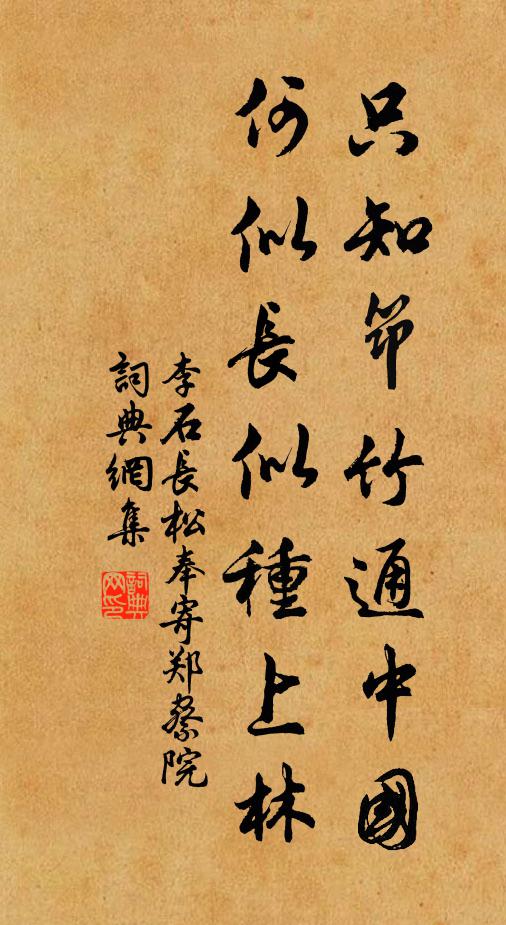 只知節竹通中國
何似長似種上林
李石長松奉寄郑察院
詞典網集
詞典网印